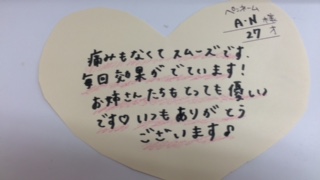 ペンネーム
A・N 様
27 才
痛みもなくてスムーズです。
毎回効果がでています！
お姉さんたちもとっても優しい
です♡いつもありがとう
ございます♪